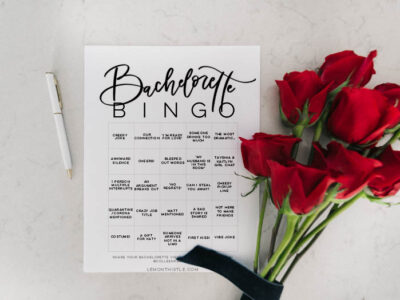 Bachelorette
BINGO
JOKE
OUR
CONNECTION
"I'M READY
FOR LOVE"
SOMEONE
DRINKS TOO
MUCH
THE MOST
DRAMATIC
AWKWARD
SILENCE
CHEERS!
BLEEPED
OUT WORDS
"MY
HUSBAND IS
IN THIS
ROOM"
TAYSHIA &
KAITLYN
GIRL CHAT
1 PERSON
MULTIPLE
INTERRUPTS
AN
ARGUMENT
BREAKS OUT
"NO
REGRETS"
CAN I STEAL
YOU AWAY?
CHEESY
LINE
QUARANTINE
/ CORONA
MENTIONED
CRAZY JOB
TITLE
MATT
MENTIONED
A SAD
STORY IS
SHARED
NOT HERE
TO MAKE
FRIENDS
COSTUME!
A GIFT
SOMEONE
ARRIVES
NOT IN A
LIMO
FIRST KISS!
JOKE
SHARE YOUR BACHELORETTE
LEMONTHISTLE.COM